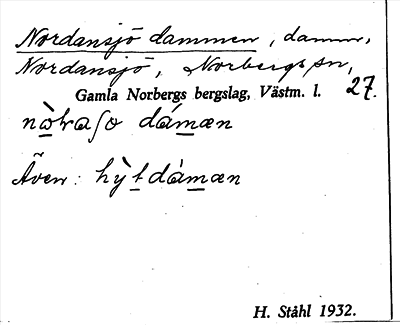 Nordansjö dammen, damm,
Nordansjö, Norbergs sn,
Gamla Norbergs bergslag, Västm. l. 27.
dám̲æn
Även: hỳt̲dám̲æn
H. Ståhl 1932.